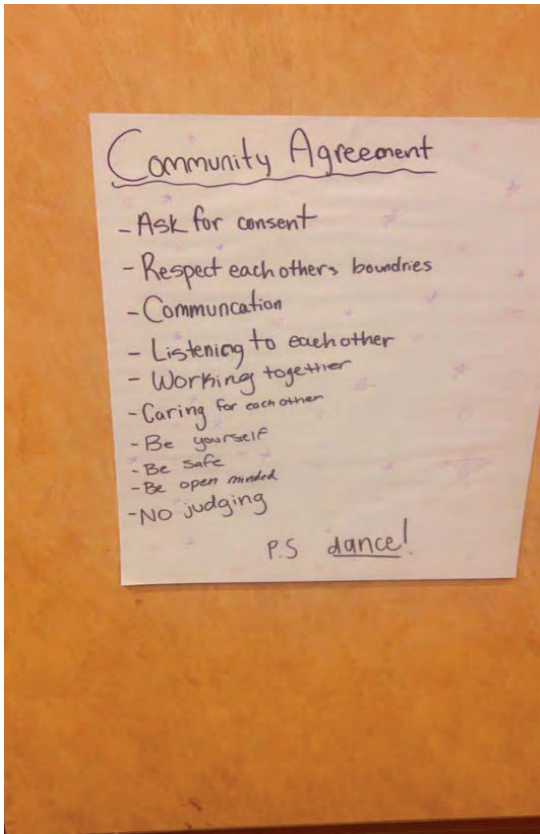 Community Agreement
- Ask for consent
- Respect eachothers boundries
- Communcation
- Listening to eachother
- Working together
- Caring for eachother
- Be yourself
- Be safe
- Be open minded
- No judging
P.S dance!